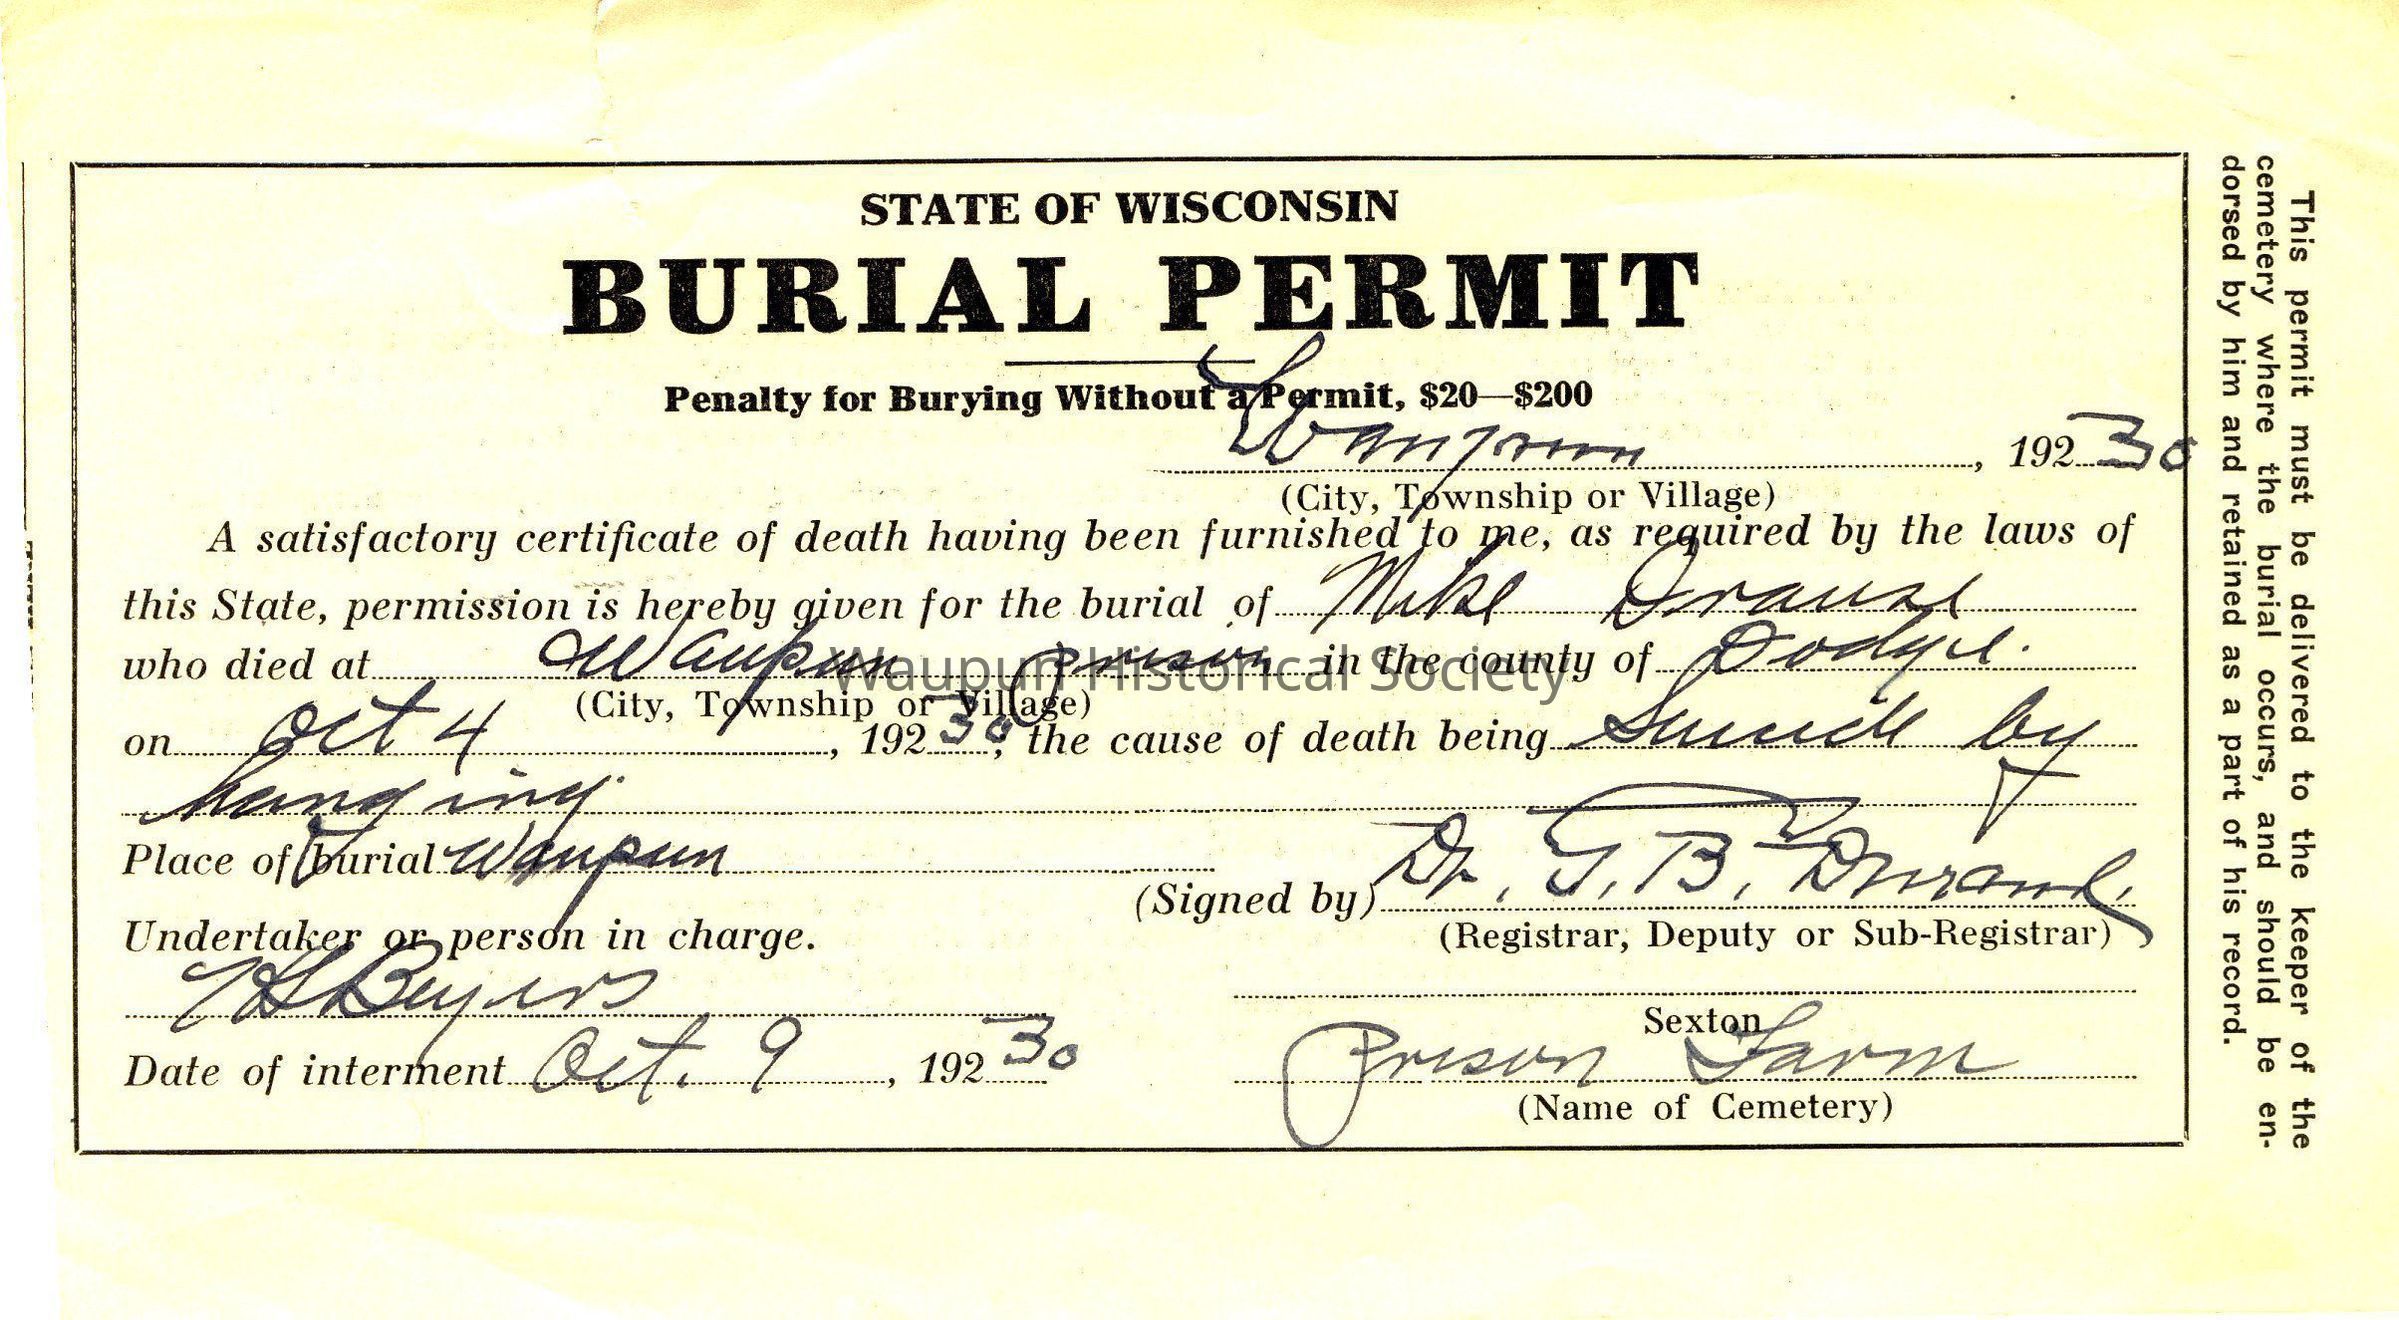 STATE OF WISCONSIN
BURIAL PERMIT
Penalty for Burying Without a Permit, $20—$200
Waupun, 19230
(City, Township or Village)
A satisfactory certificate of death having been furnished to me, as required by the laws of
this State, permission is hereby given for the burial of Mike
who died at Waupun Prison in the county of Dodge.
(City, Township or Village)
on Oct 4, 19230, the cause of death being Suicide by
hanging.
Place of burial Waupun
(Signed by) Dr. B.
Undertaker or person in charge.
(Registrar, Deputy or Sub-Registrar)
Beyers
Sexton
Date of interment Oct. 9, 19230
Prison Farm
(Name of Cemetery)
This permit must be delivered to the keeper of the
cemetery where the burial occurs, and should be en-
dorsed by him and retained as a part of his record.
Waupun Historical Society